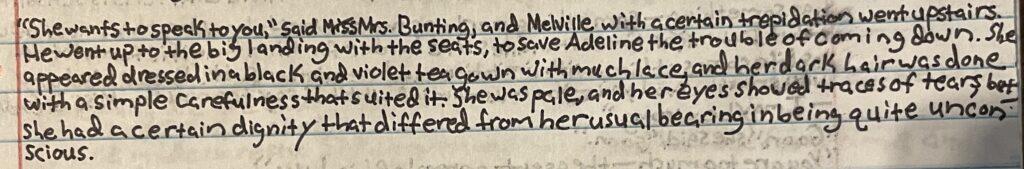 "She wants to speak to you," said Miss Mrs. Bunting, and Melville with a certain trepidation went upstairs.
He went up to the big landing with the seats, to save Adeline the trouble of coming down. She
appeared dressed in a black and violet tea gown with much lace, and her dark hair was done
with a simple carefulness that suited it. She was pale, and her eyes showed traces of tears, but
she had a certain dignity that differed from her usual bearing in being quite uncon-
scious.